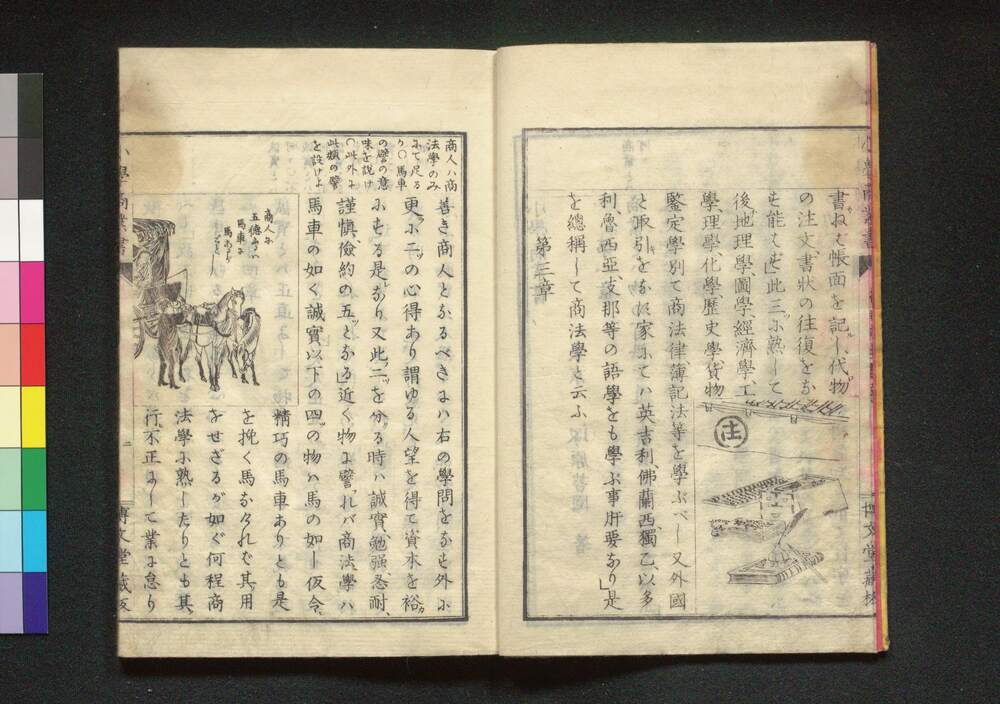 書ねバ帳面を記し代物
の注文書狀の往復をな
も能はず此三ツに熟して
後地理學圖學經濟學工
學理學化學歷史學貨物
鑒定學別て商法律簿記法等を學ぶべし又外國
と取引をなす家にてハ英吉利佛蘭西獨乙以多
利魯西亞支那等の語學をも學ぶ事肝要なり是
を總稱して商法學と云ふ
第三章
注
博文堂藏梓
商人ハ商
法學のみ
にて足る
り〇馬車
の譬の意
味を説け
〇此外に
此類の譬
を設けよ
善き商人となるべきにハ右の學問をなす外に
更に二ツの心得あり謂ゆる人望を得て資本を裕
にする是なり又此二ツを分る時ハ誠實勉强忍耐
謹愼儉約の五ツとなる近く物に譬れバ商法學ハ
馬車の如く誠實以下の四ツの物ハ馬の如し仮令
精巧の馬車ありとも是
を挽く馬なけれバ其用
をせざるが如く何程商
法學に熟したりとも其
行不正にして業に怠り
商人に
五德あるハ
馬車に
馬あるが
ごとし
小學商業書
二
博文堂藏版